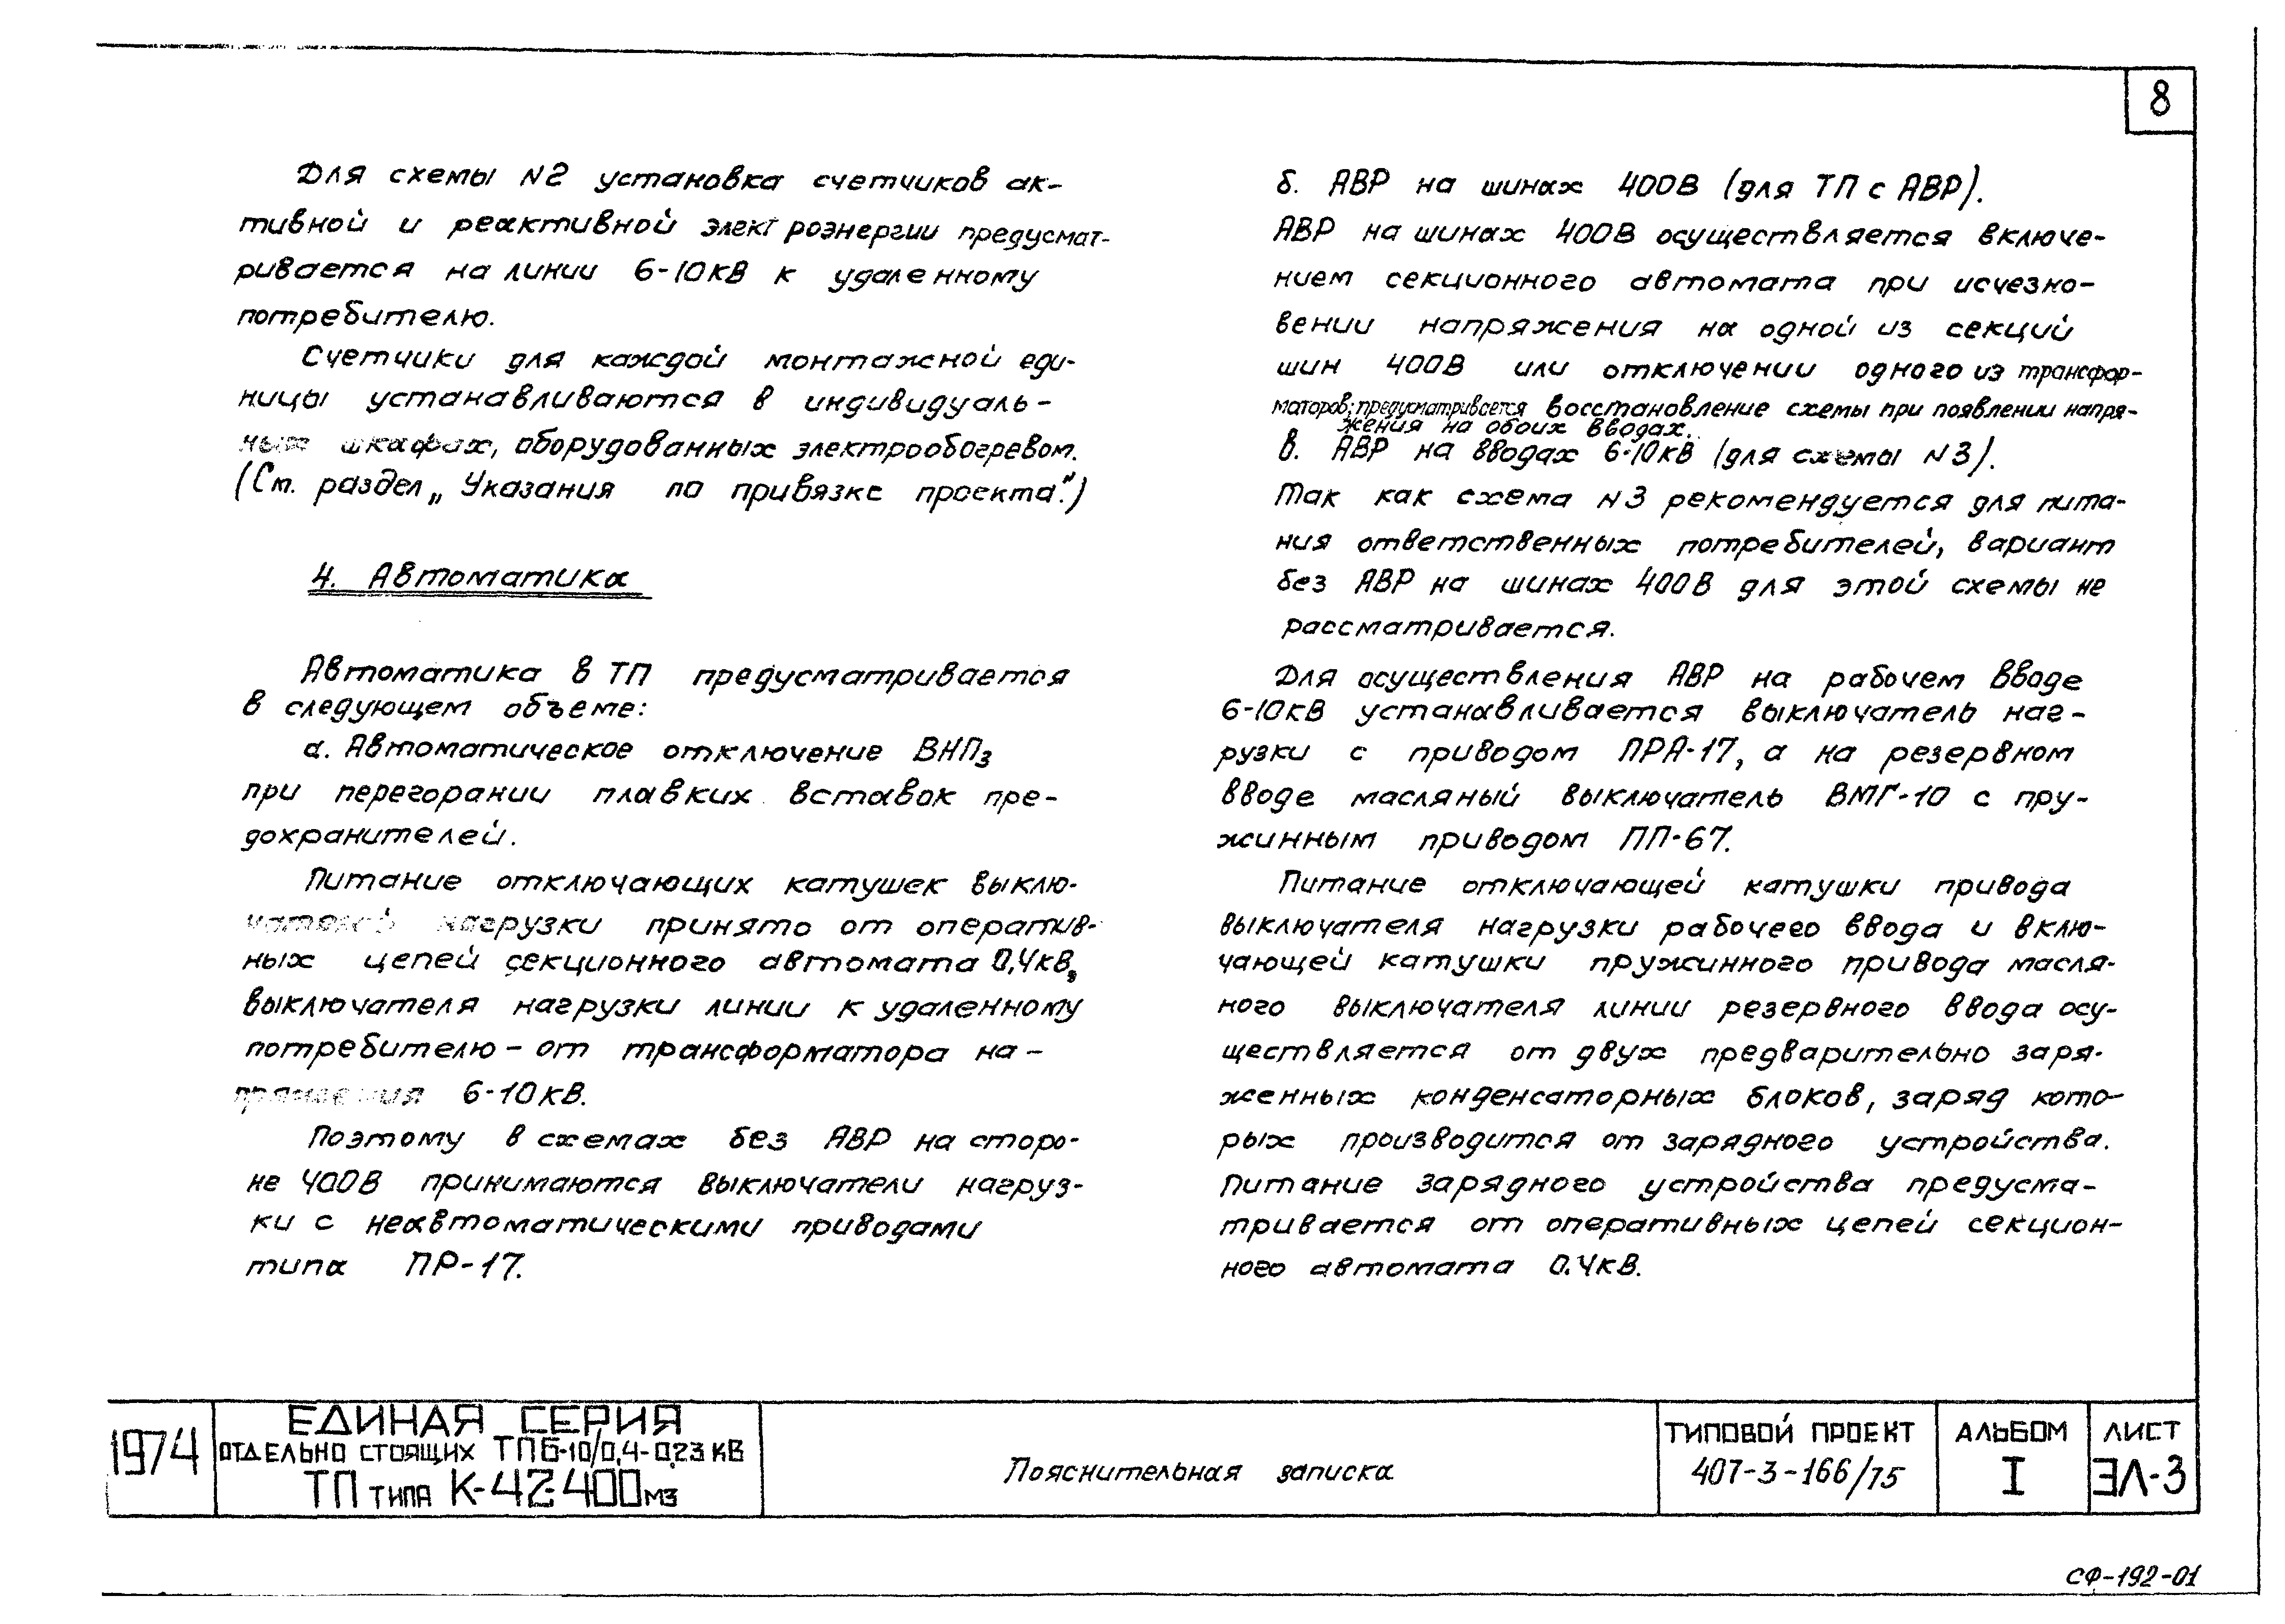 8
Для схемы N2 установка счетчиков ак-
тивной и реактивной электроэнергии предусмат-
ривается на линии 6-10кВ к удаленному
потребителю.
Счетчики для каждой монтажной еди-
ницы устанавливаются в индивидуаль-
ных шкафах, оборудованных электрообогревом.
(См. раздел „Указания по привязке проекта".)
4. Автоматика
Автоматика в ТП предусматривается
в следующем объеме:
а. Автоматическое отключение ВНПз
при перегорании плавких вставок пре-
дохранителей.
Питание отключающих катушек выклю-
чателей нагрузки принято от оператив-
ных цепей секционного автомата 0,4кВ,
выключателя нагрузки линии к удаленному
потребителю - от трансформатора на-
пряжения 6-10кВ.
Поэтому в схемах без АВР на сторо-
не 400В принимаются выключатели нагруз-
ки с неавтоматическими приводами
типа ПР-17.
б. АВР на шинах 400В (для ТП с АВР).
АВР на шинах 400В осуществляется включе-
нием секционного автомата при исчезно-
вении напряжения на одной из секций
шин 400В или отключении одного из трансфор-
маторов; предусматривсется восстановление схемы при появлении напря-
жения на обоих вводах.
в. АВР на вводах 6-10кВ (для схемы N3).
Так как схема N3 рекомендуется для пита-
ния ответственных потребителей, вариант
без АВР на шинах 400В для этой схемы не
рассматривается.
Для осуществления АВР на рабочем вводе
6-10кВ устанавливается выключатель наг-
рузки с приводом ПРА-17, а на резервном
вводе масляный выключатель ВМГ-10 с пру-
жинным приводом ПП-67.
Питание отключающей катушки привода
выключателя нагрузки рабочего ввода и вклю-
чающей катушки пружинного привода масля-
ного выключателя линии резервного ввода осу-
ществляется от двух предварительно заря-
женных конденсаторных блоков, заряд кото-
рых производится от зарядного устройства.
Питание зарядного устройства предусма-
тривается от оперативных цепей секцион-
ного автомата 0.4кВ.
1974
ЕДИНАЯ СЕРИЯ
ОТДЕЛЬНО СТОЯЩИХ ТП 6-10/0,4-0,23 КВ
ТП ТИПА К-42-400 МЗ
Пояснительная записка
ТИПОВОЙ ПРОЕКТ
407-3-166/75
АЛЬБОМ
I
ЛИСТ
ЭЛ-3
СФ-192-01